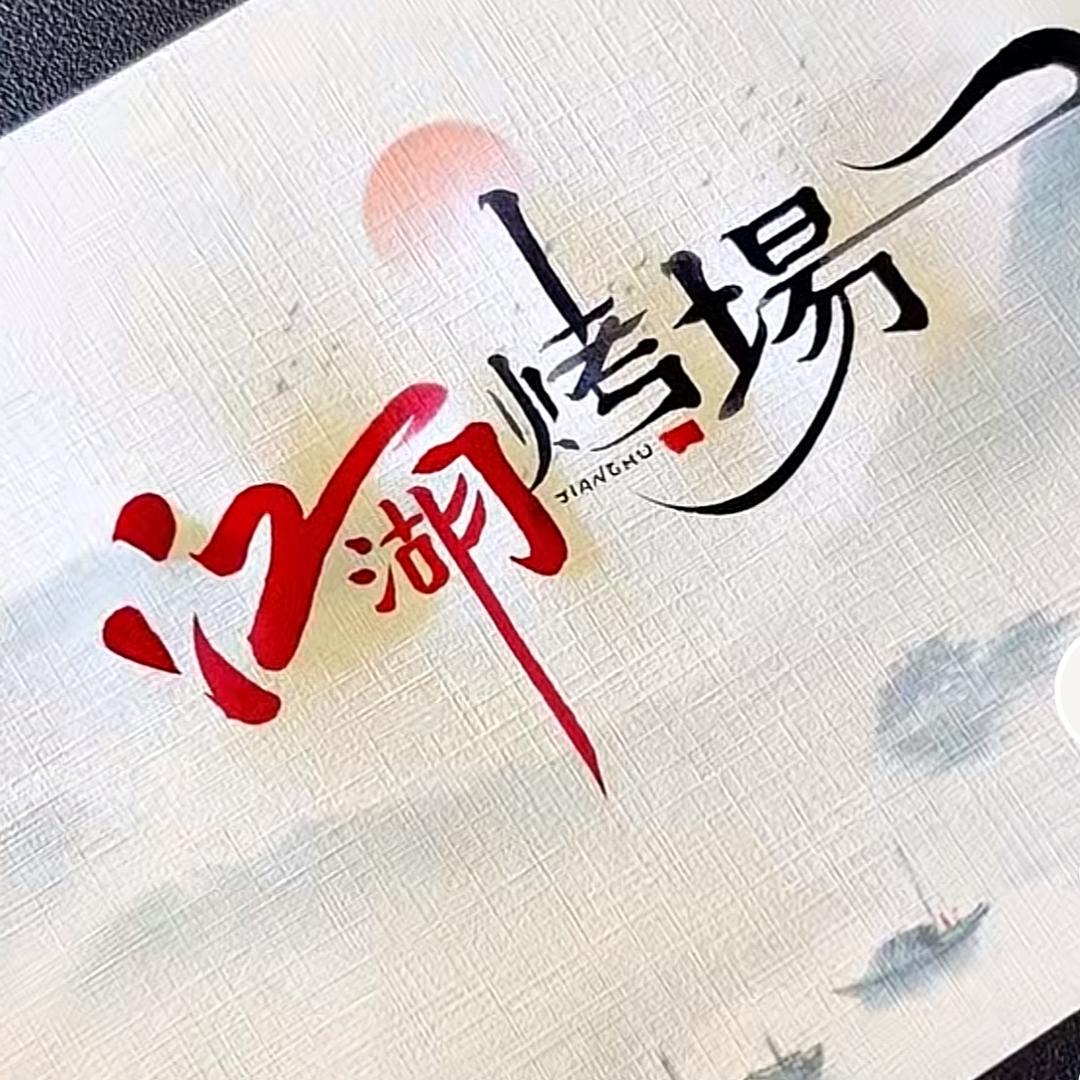 江湖烤場
JIANGHU